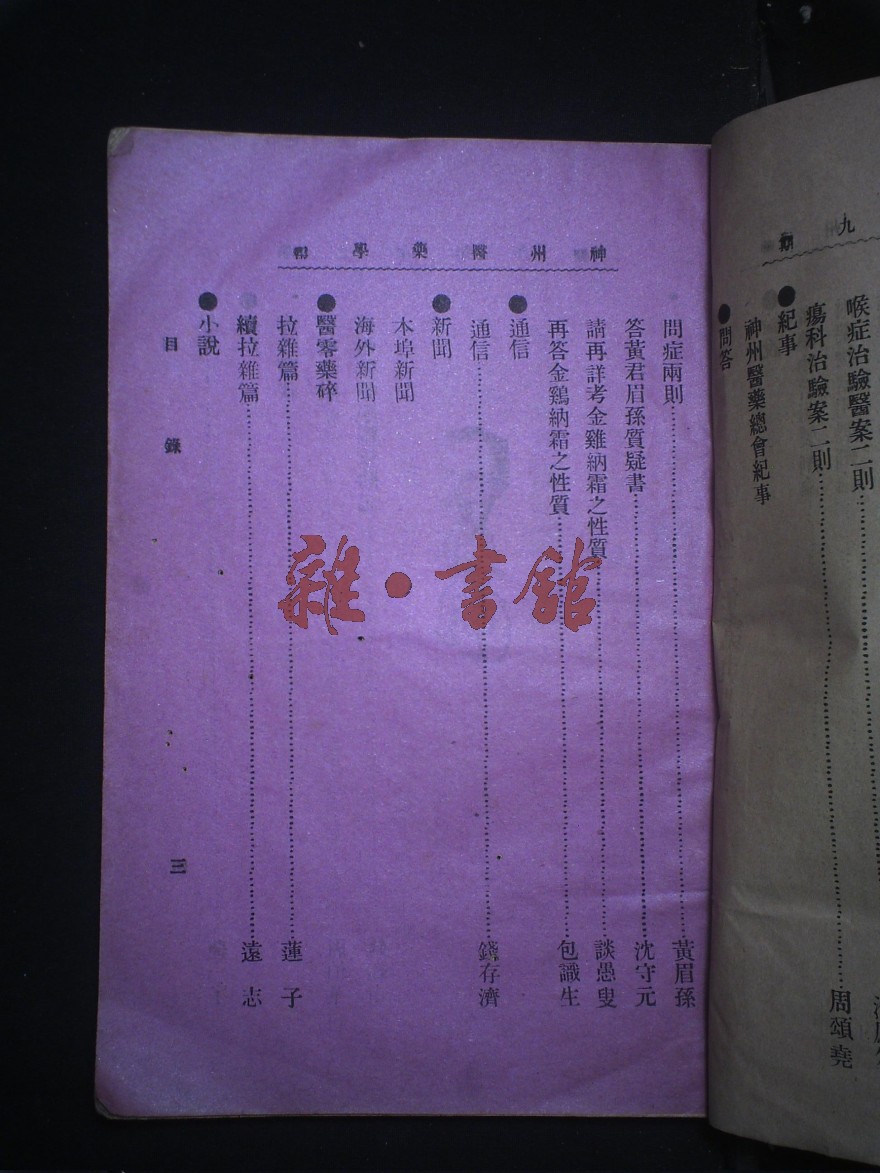 九期
喉症治驗醫案二則
瘍科治驗案二則 周頌堯
●紀事
神州醫藥總會紀事
●問答
神州醫藥學報
問症兩則 黃眉孫
答黃君眉孫質疑書 沈守元
請再詳考金雞納霜之性質 談愚叟
再答金鷄納霜之性質 包識生
●通信
通信 錢存濟
●新聞
本埠新聞
海外新聞
●醫零藥碎
拉雜篇 蓮子
續拉雜篇 遠志
●小說
目錄 三
雜·書館